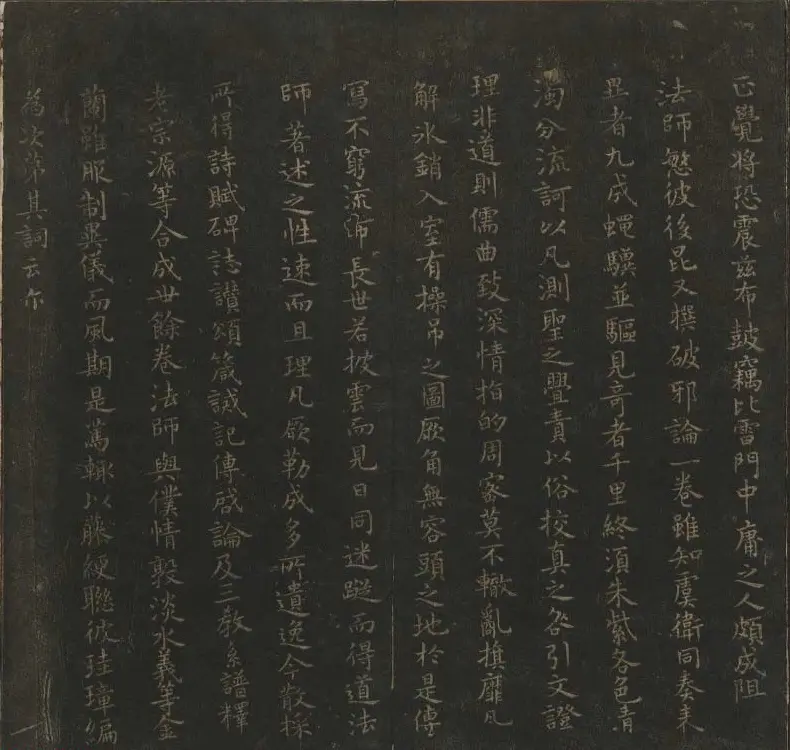 正覺將恐震茲布鼓竊比雷門中庸之人頗成阻
法師愍彼後昆又撰破邪論一卷雖知虞衛同奏表
異者九成蠅驥並驅見奇者千里終須朱紫各色清
濁分流訶以凡測聖之舋責以俗挍真之咎引文證
理非道則儒曲致深情指的周密莫不轍亂旗靡凡
解氷銷入室有操矛之圖厥角無容頭之地於是傳
寫不窮流布長世若披雲而見日同迷蹤而得道法
師著述之性速而且理凡厥勒成多所遺逸今散採
所得詩賦碑誌讚頌箴誡記傳啟論及三教系譜釋
老宗源等合成卅餘卷法師與僕情敦淡水義等金
蘭雖服制異儀而風期是篤輒以藤緶聯彼珪璋編
為次第其詞云尔